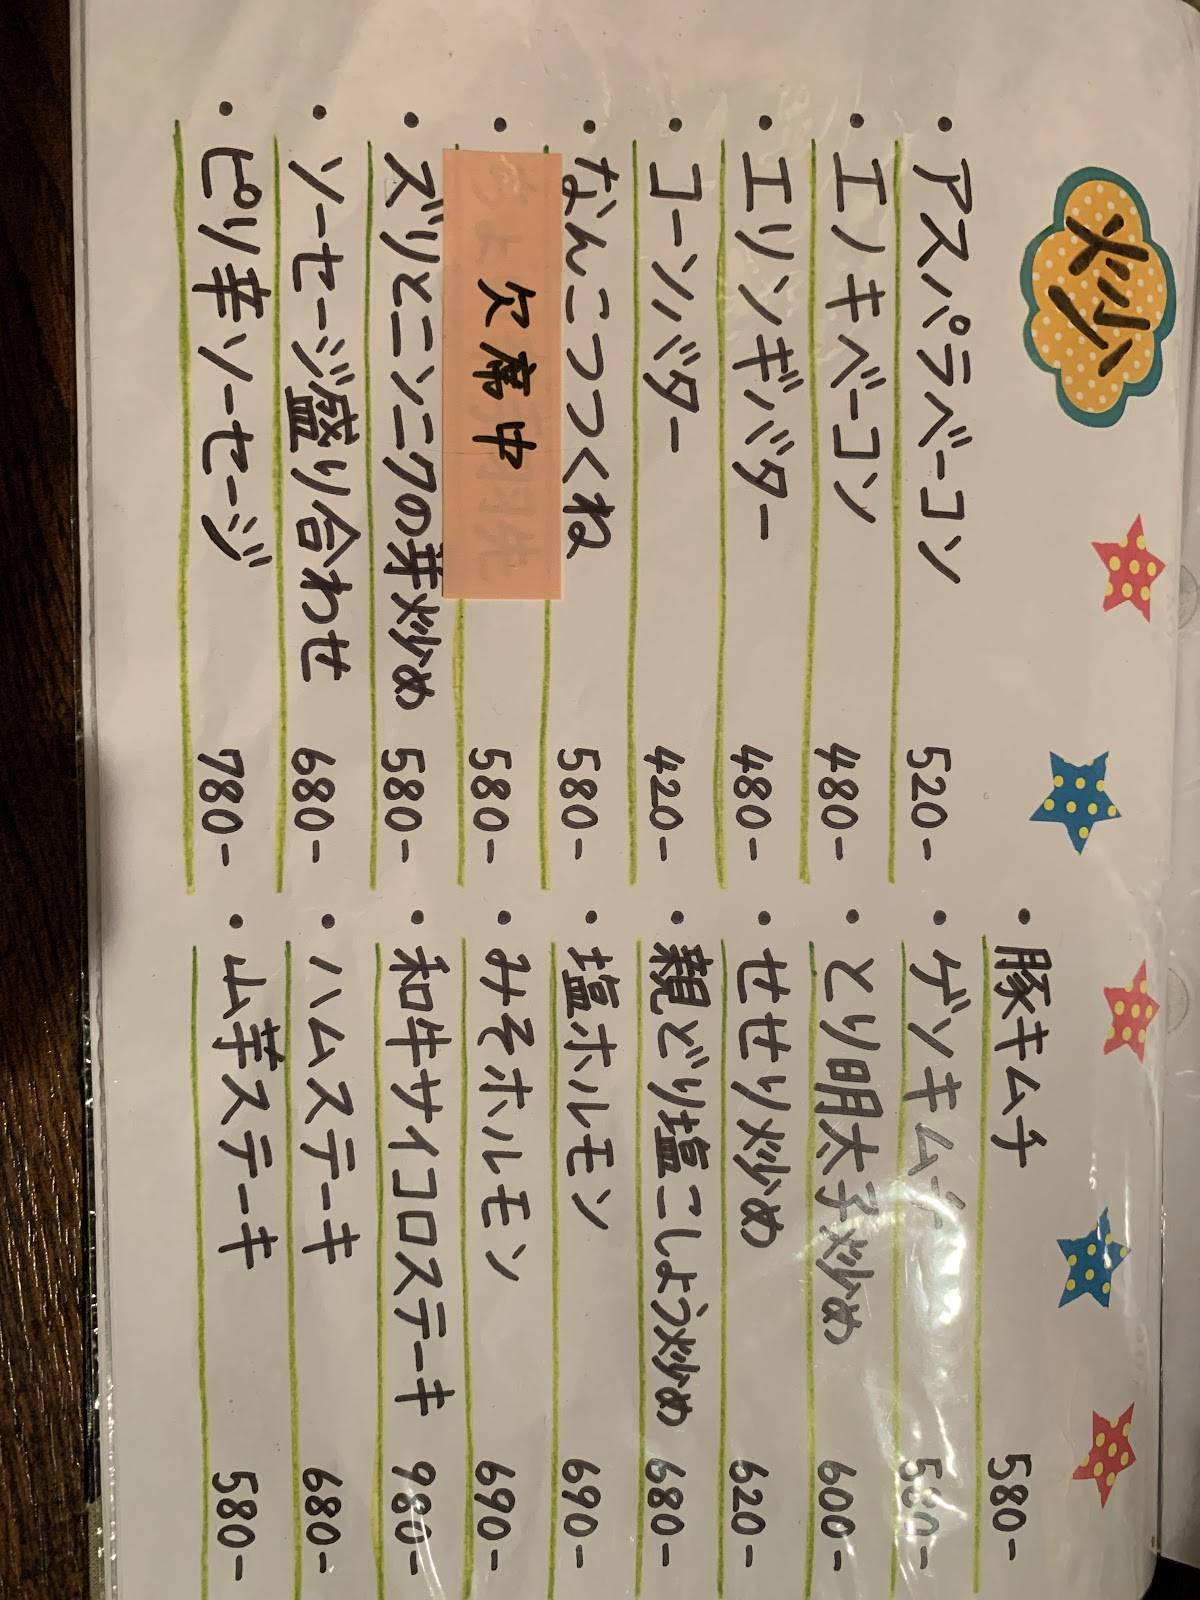 炒
・アスパラベーコン 520-
・エノキベーコン 480-
・エリンギバター 480-
・コーンバター 420-
・なんこつつくね 580-
・欠席中 580-
・ズリとニンニクの芽炒め 580-
・ソーセージ盛り合わせ 680-
・ピリ辛ソーセージ 780-
・豚キムチ 580-
・ゲソキムチ 580-
・とり明太子炒め 600-
・せせり炒め 620-
・親どり塩こしょう炒め 680-
・塩ホルモン 690-
・みそホルモン 690-
・和牛サイコロステーキ 980-
・ハムステーキ 680-
・山芋ステーキ 580-